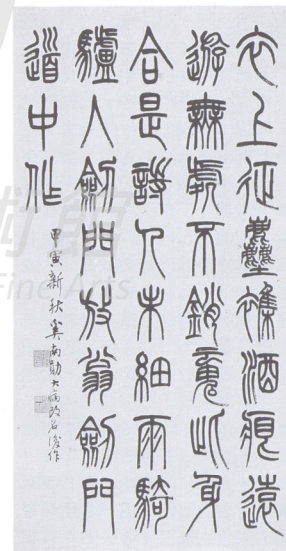 衣上征塵雜酒痕遠
遊無處不銷魂此身
合是詩人未細雨騎
驢入劍門放翁劍門
道中作
甲寅新秋奚南勛大病改名後作
術館
Fine Arts